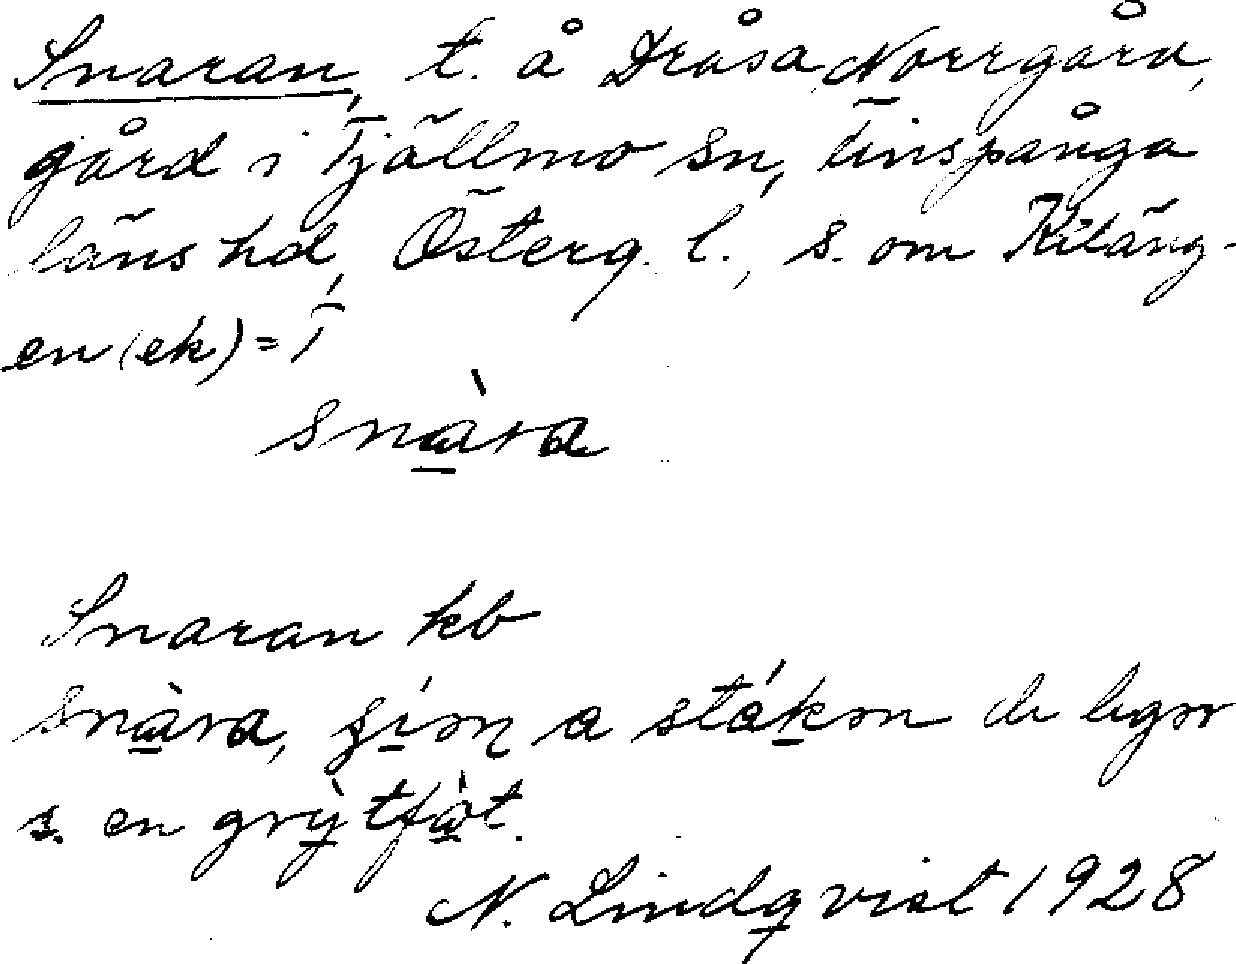 Snaran, t. å Dråsa, Norrgård,
gård i Tjällmo sn, Finspånga
läns hd, Österg. l., s. om Kitäng-
en (ek) = T
snàra
Snaran kb
snàra, a stákən de ligər
s. en grỳtfòt.
N. Lindqvist 1928